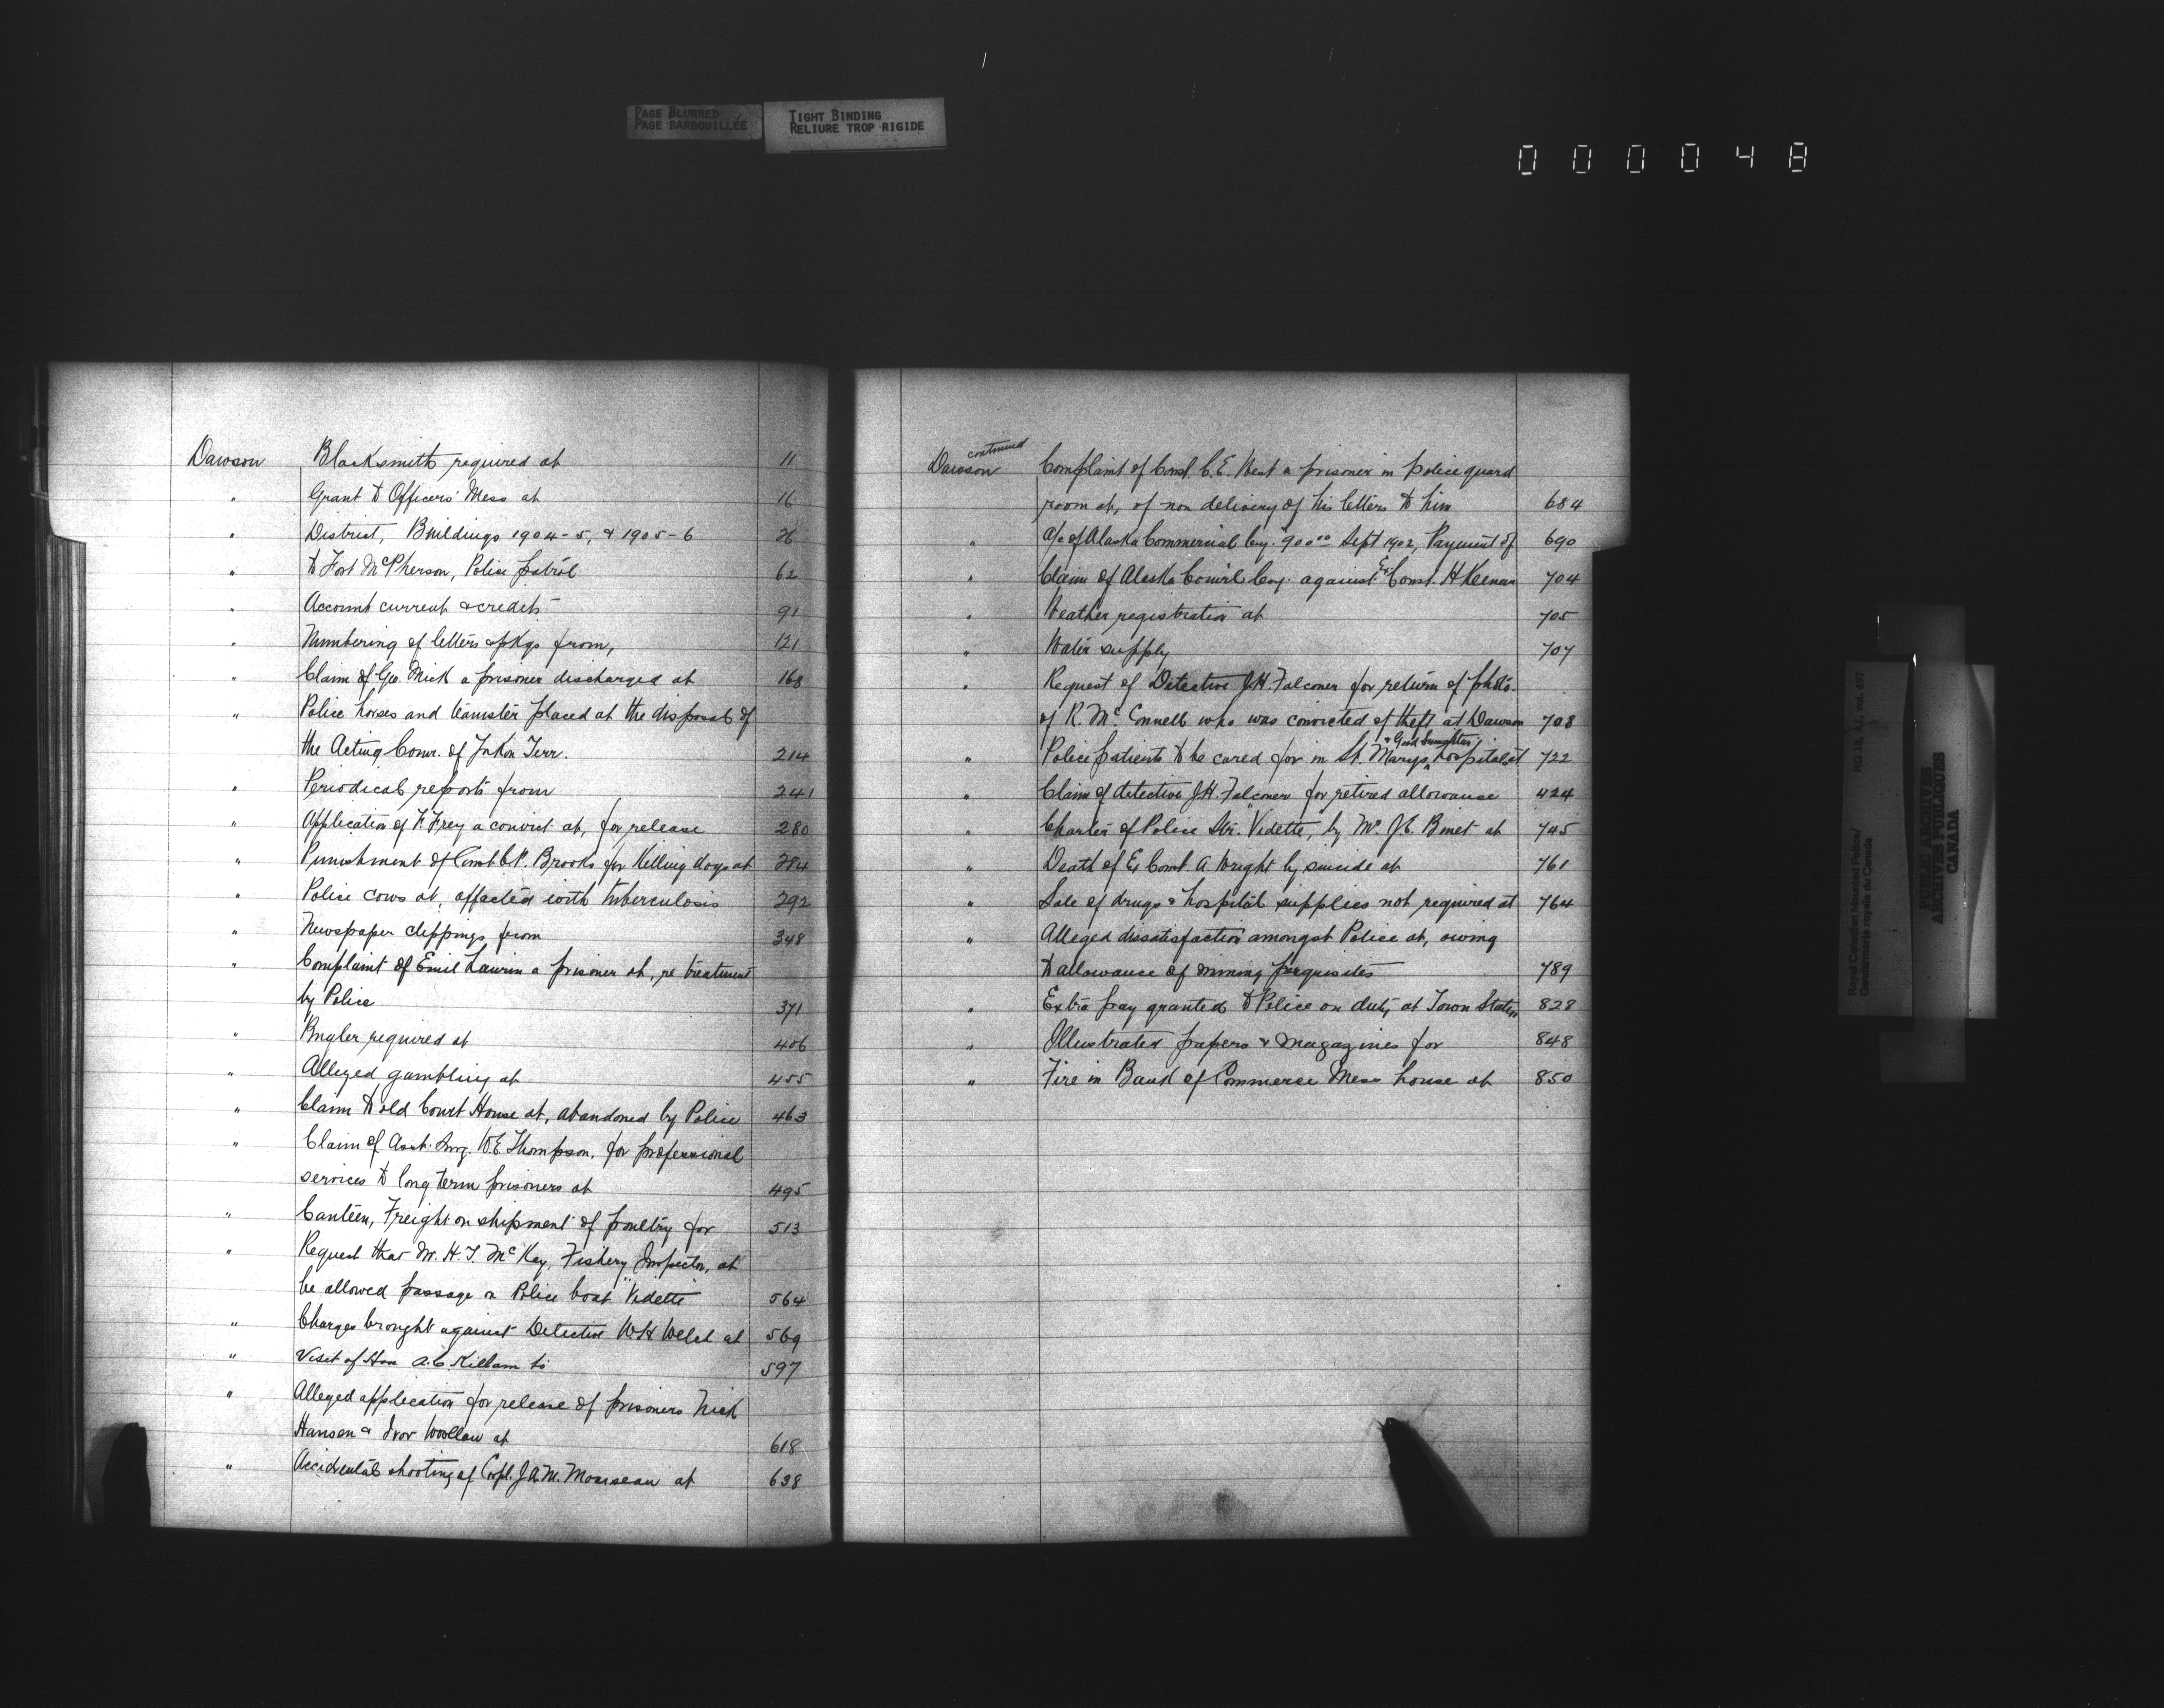 PAGE BLURRED
PAGE BARBOUILLÉE
TIGHT BINDING
RELIURE TROP RIGIDE
000048
Dawson Blacksmith required at 11
" Grant to Officers' Mess at 16
" District, Buildings 1904-5, & 1905-6 26
" to Fort McPherson, Police patrol 62
" Account current & credits 91
" Numbering of letters & pkgs from, 121
" Claim of Geo. Mick a prisoner discharged at 168
" Police horses and teamster placed at the disposal of
the Acting Comr. of Yukon Terr. 214
" Periodical reports from 241
" Application of F. Frey a convict at, for release 280
" Punishment of Const. C.P. Brooks for Killing dogs at 284
" Police cows at, affected with tuberculosis 292
" Newspaper clippings from 348
" Complaint of Emil Laurin a prisoner at, re treatment
by Police 371
" Bugler required at 406
" Alleged gambling at 455
" Claim to old Court House at, abandoned by Police 463
" Claim of Asst. Surg. W.E. Thompson, for professional
services to long term prisoners at 495
" Canteen, Freight on shipment of poultry for 513
" Request that Mr. H.T. McKay, Fishery Inspector, at
be allowed passage on Police boat "Vidette" 564
" Charges brought against Detective W.H. Welch at 569
" Visit of Hon A.C. Killam to 597
" Alleged application for release of prisoners Nick
Hansen & Ivor at 618
" Accidental shooting of Corpl. J.A.M. Mousseau at 638
Dawson continued Complaint of Const. C.E. West a prisoner in police guard
room at, of non delivery of his letters to him 684
" a/c of Alaska Commercial Coy. 900.00 Sept 1902, Payment of 690
" Claim of Alaska Com'l Coy. against Ex Const. H Keenan 704
" Weather registration at 705
" Water supply 707
" Request of Detective J.H. Falconer for return of photo.
of R. McConnell who was convicted of theft at Dawson 708
" Police patients to be cared for in St. Marys & Good Samaritan hospitals at 722
" Claim of detective J.H. Falconer for retired allowance 424
" Charter of Police Str. "Vidette", by Mr. J.E. Binet at 745
" Death of Ex Const. A. Wright by suicide at 761
" Sale of drugs & hospital supplies not required at 764
" Alleged dissatisfaction amongst Police at, owing
to allowance of mining perquisites 789
" Extra pay granted to Police on duty at Town Station 828
" Illustrated papers & magazines for 848
" Fire in Bank of Commerce Mess house at 850
RG 18, A1, vol. 697
Royal Canadian Mounted Police/
Gendarmerie royale du Canada
PUBLIC ARCHIVES
ARCHIVES PUBLIQUES
CANADA